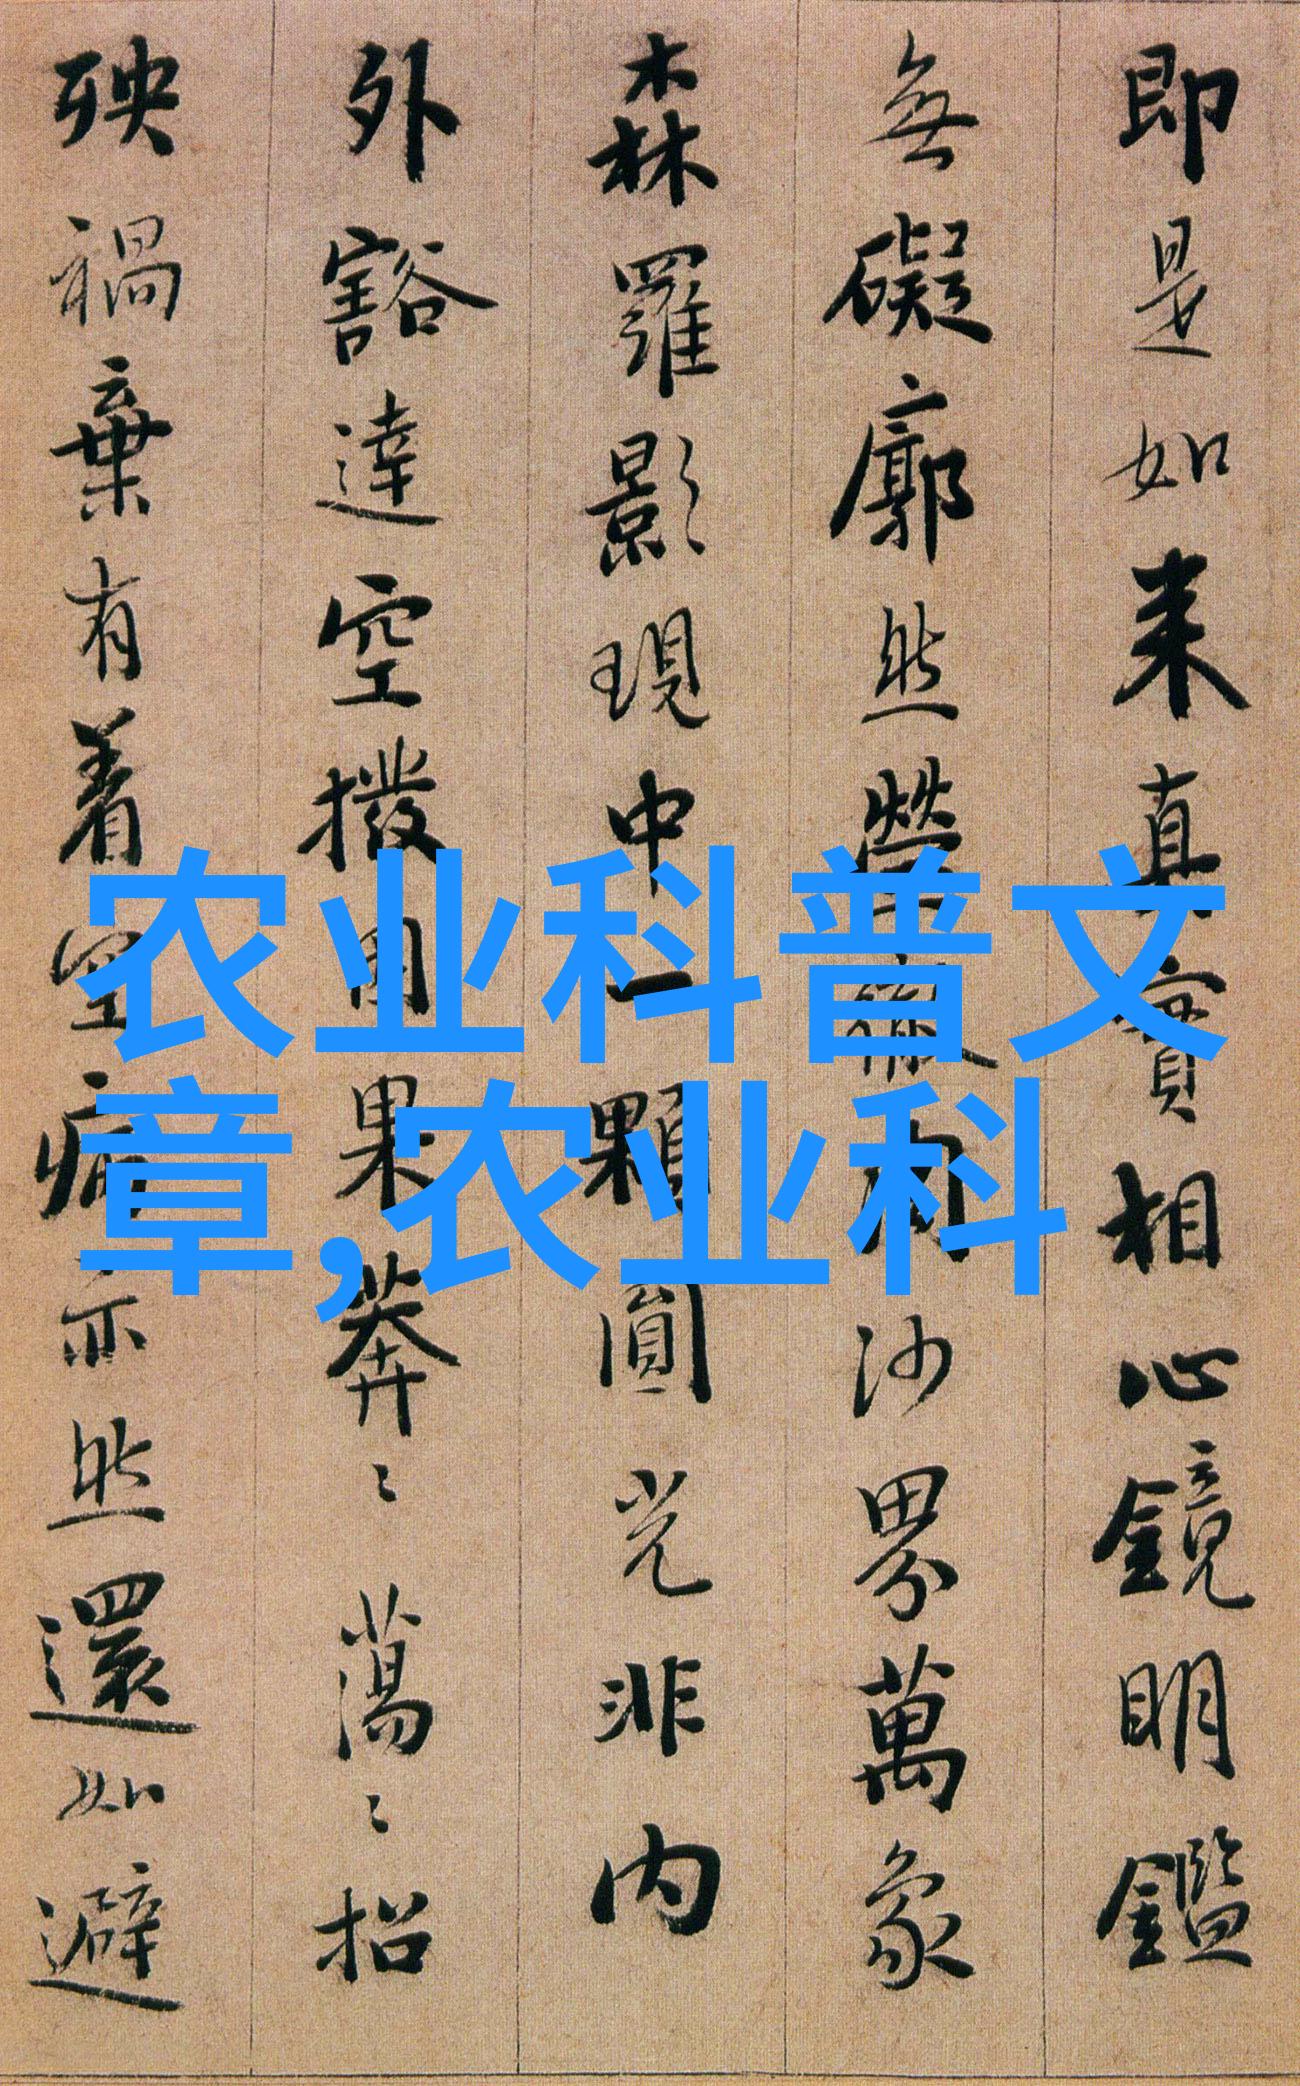 即是如来真實相心鏡明鑑
無礙廓然瑩徹周沙界萬象
森羅影現中一顆圓光非内
外豁達空撥因果莽〻蕩〻招
殃禍棄有着空病亦然還如避
农业科普文
章,农业科